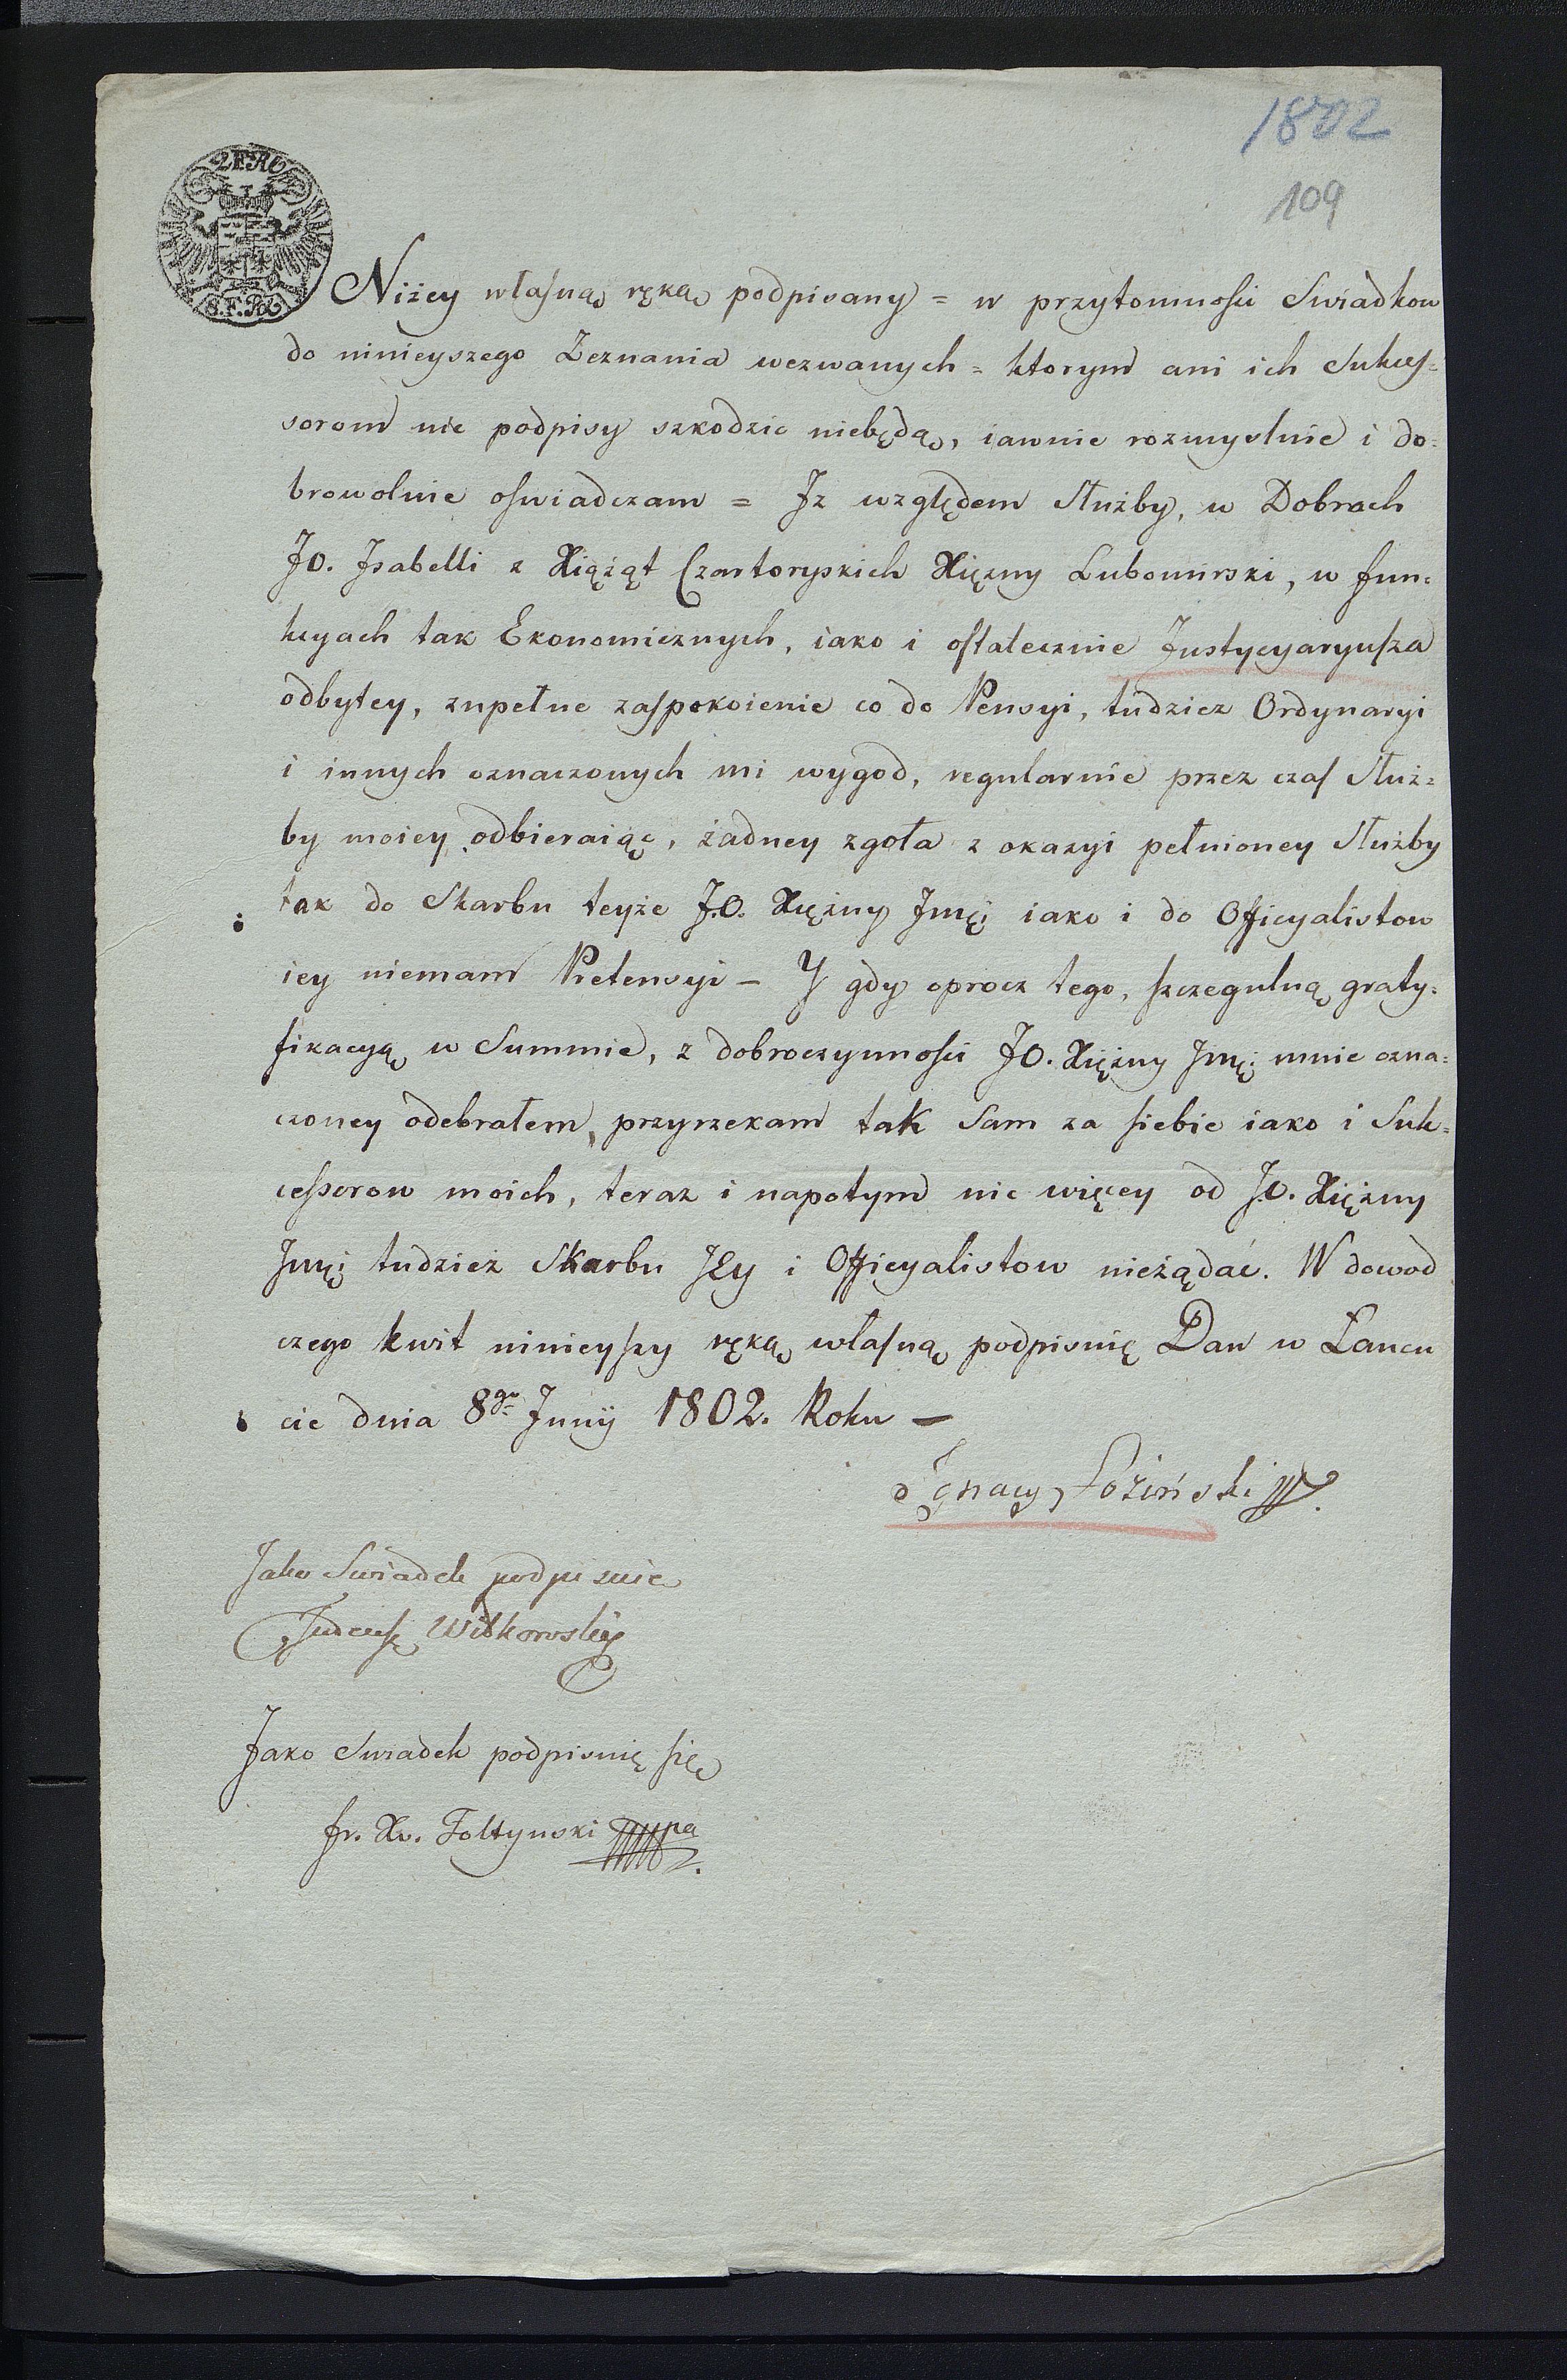 1802
109
Niżey własną ręką podpisany = w przytomności Swiadkow
do ninieyszego Zeznania wezwanych = ktorym ani ich Sukces=
sorom nic podpisy szkodzic niebędą, iawnie rozmyslnie i do=
browolnie oswiadczam = Jz względem Służby, w Dobrach
JO. Jsabelli z Xiążąt Czartoryskich Xiężny Lubomirski, w fun=
kcyach tak Ekonomicznych, iako i ostatecznie Justycyaryusza
odbytey, zupełne zaspokoienie co do Pensyi, tudziez Ordynaryi
i innych oznaczonych mi wygod, regularnie przez czas Służ=
by moiey odbieraiąc, żadney zgoła z okazyi pełnioney Służby
tak do Skarbu teyże J.O. Xiężny Jmęi iako i do Officyalistow
iey niemam Pretensyi – Y gdy oprocz tego, szczegulną graty=
fikacyą w Summie, z dobroczynności JO. Xiężny Jmęi mnie ozna=
czoney odebrałem, przyrzekam tak Sam za siebie iako i Suk=
cessorow moich, teraz i napotym nic więcey od J.O. Xiężny
Jmęi tudzież Skarbu JEy i Officyalistow nieżądać. W dowod
czego kwit ninieyszy ręką własną podpisuię Dan w Łancu
cie dnia 8go Junÿ 1802. Roku –
Ignacy Łoziński
Jako Swiadek podpisuie
Witkowski
Jako Swiadek podpisuię się
Fr. Xw. Foltynski mpa